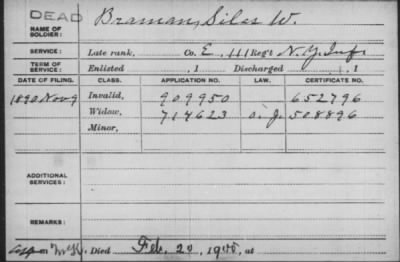 DEAD
NAME OF SOLDIER: Braman, Silas W.
SERVICE: Late rank, Co. E, 111 Reg't N.Y. Inf.
TERM OF SERVICE: Enlisted , 1 Discharged , 1
DATE OF FILING. CLASS. APPLICATION NO. LAW. CERTIFICATE NO.
1890 Nov 9 Invalid, 909950 652796
Widow, 714623 O. J. 508896
Minor,
ADDITIONAL SERVICES:
REMARKS:
Died Feb. 20, 1900, at